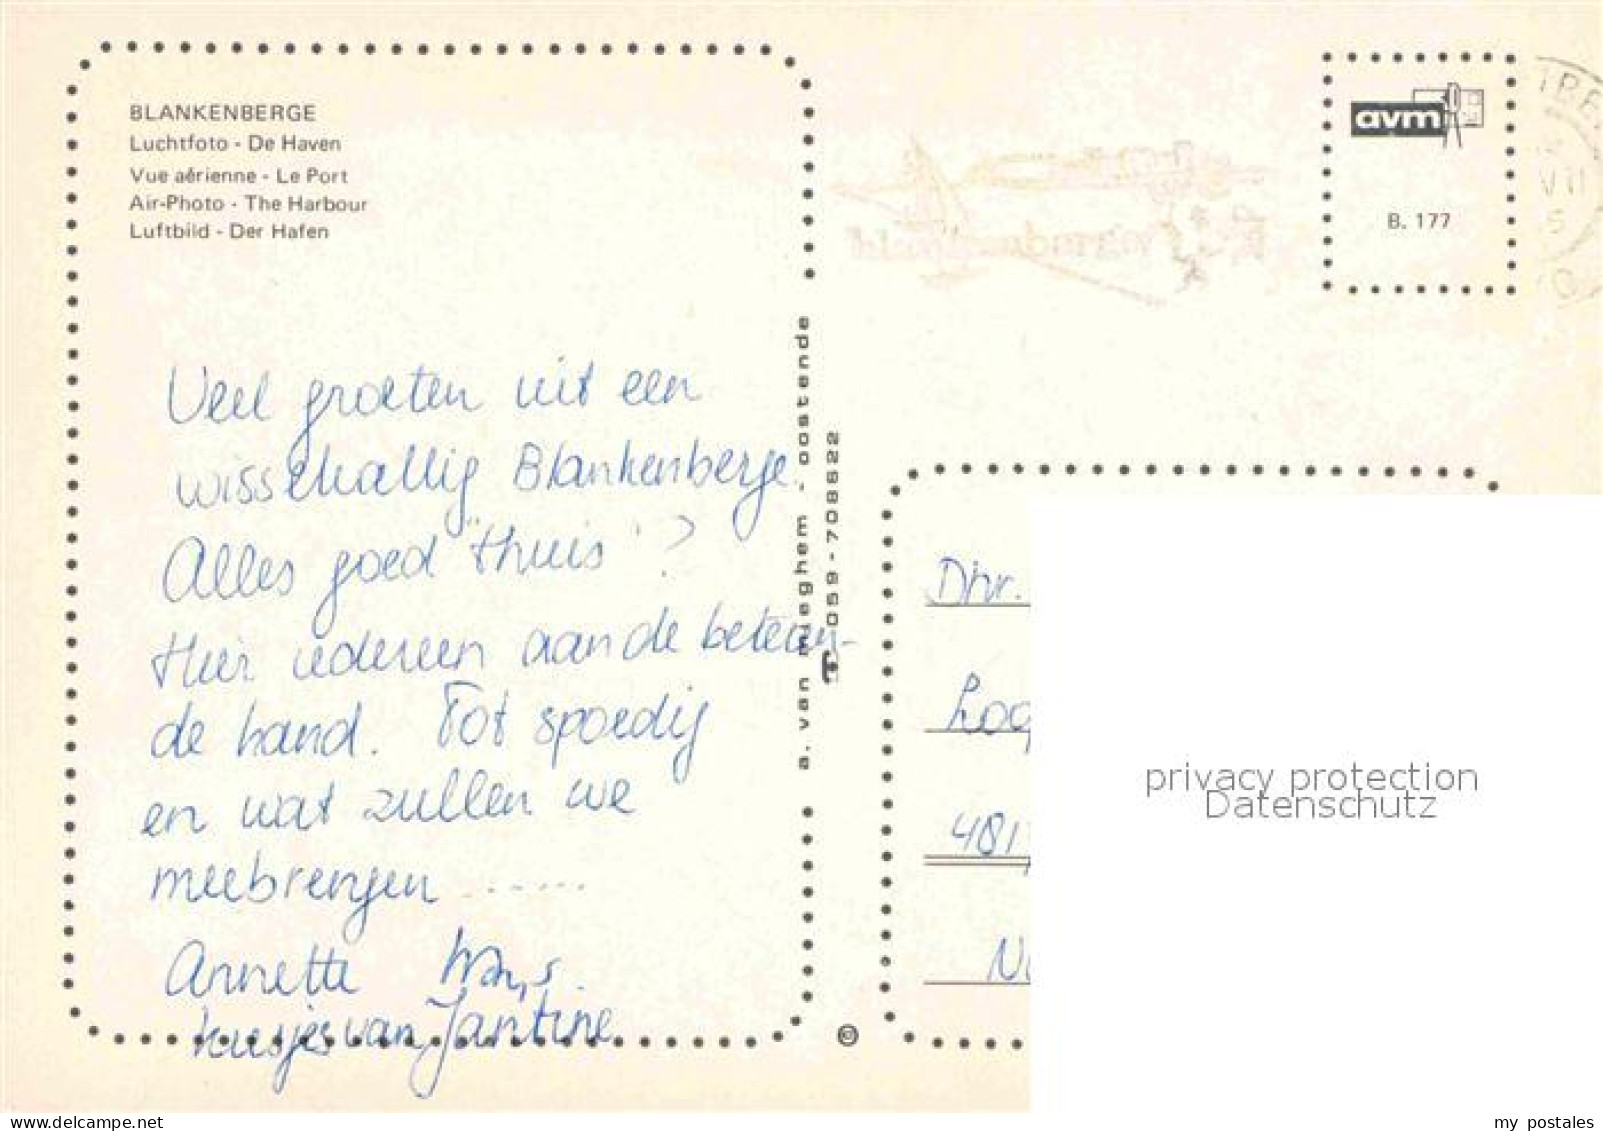 BLANKENBERGE
Luchtfoto - De Haven
Vue aérienne - Le Port
Air-Photo - The Harbour
Luftbild - Der Hafen
avm
B. 177
Veel groeten uit een
wisselvallig Blankenberge.
Alles goed "thuis"?
Hier iedereen aan de beteren-
de hand. Tot spoedig
en wat zullen we
meebrengen ......
Annette Hans.
kusjes van Jantine
a. van mieghem - oostende
T 059-708622
©
Dhr.
481
privacy protection
Datenschutz
my postales
Delcampe.net